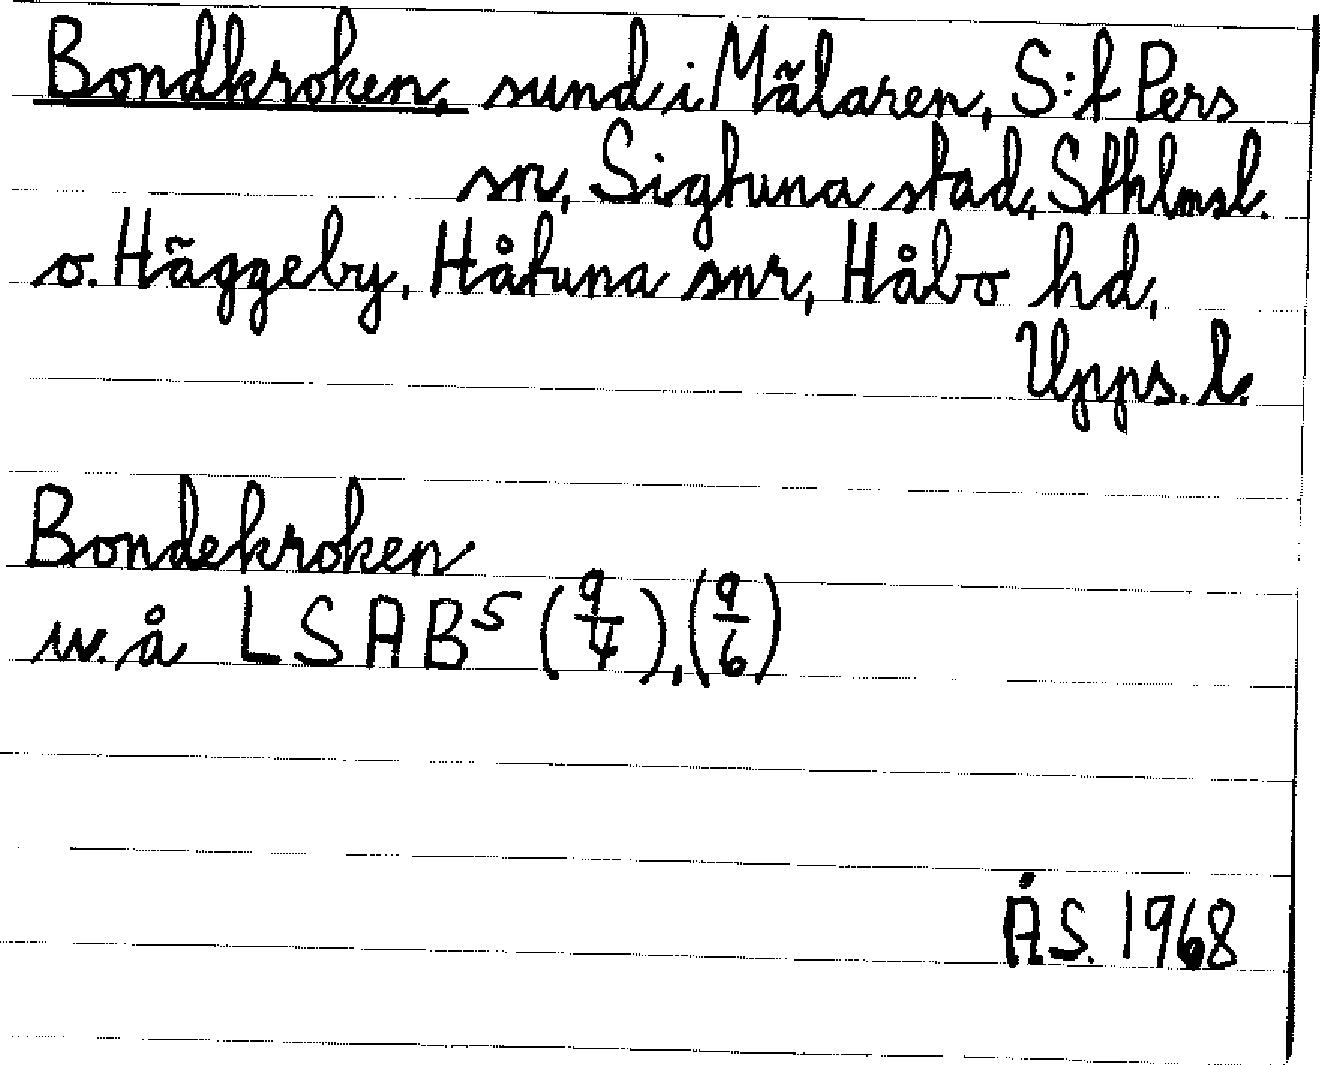 Bondkroken, sund i Mälaren, S:t Pers
sn, Sigtuna stad, Sthlmsl.
o. Häggeby, Håtuna snr, Håbo hd,
Upps. l.
Bondekroken
w. å LSAB⁵ (9/4), (9/6)
ÅS. 1968